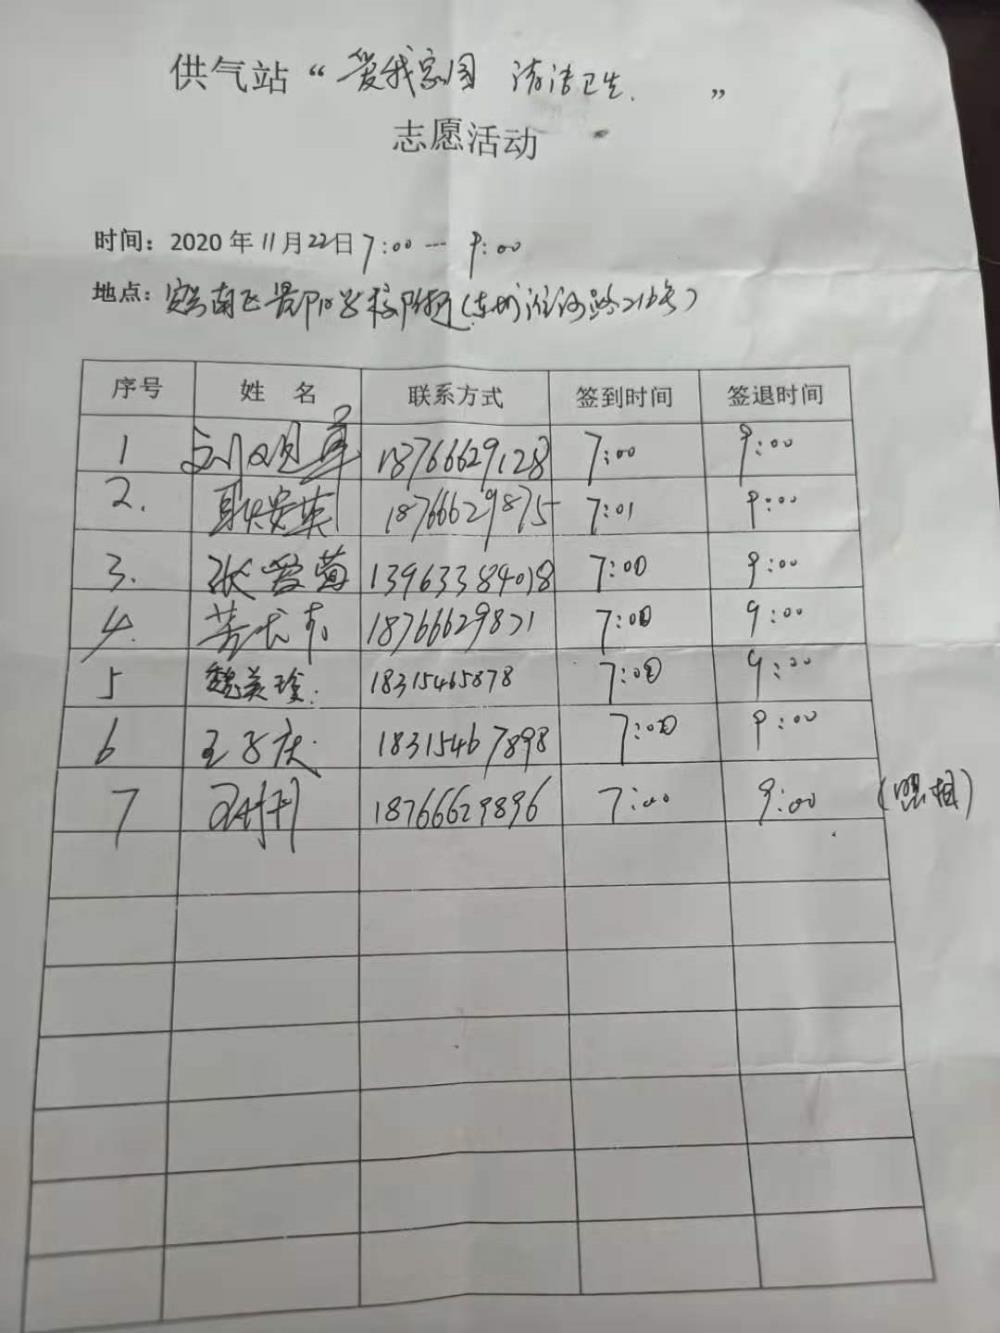 供气站“爱我家园 清洁卫生.”
志愿活动
时间：2020 年 11 月 22 日 7:00 — 9:00
地点：
序号 姓 名 联系方式 签到时间 签退时间
1 18766629128 7:00 9:00
2. 耿安英 18766629875 7:01 9:00
3. 张爱萍 13963384018 7:00 9:00
4. 18766629871 7:00 9:00
5 魏美珍. 18315465878 7:00 9:00
6 王子庆. 18315467898 7:00 9:00
7 18766629896 7:00 9:00 (照相)